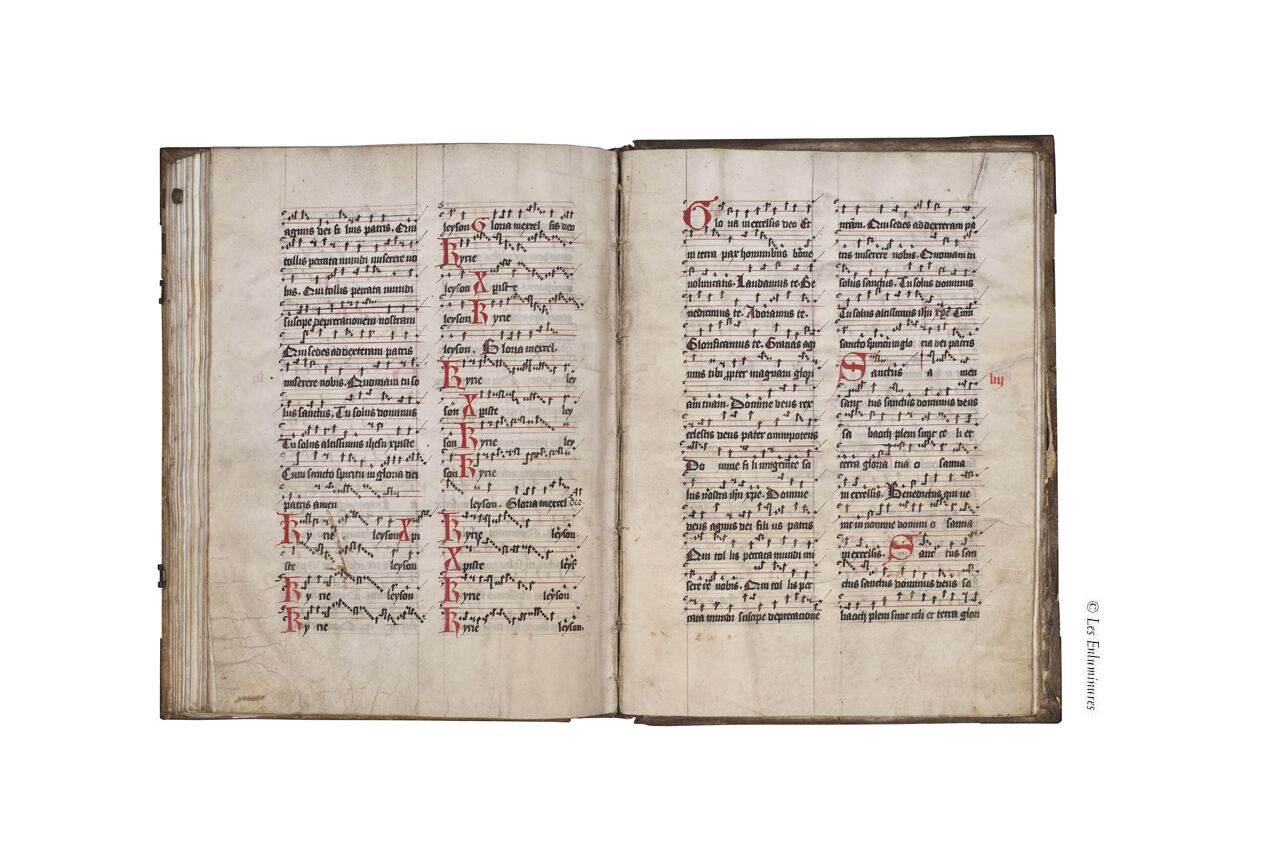 agnus dei fi lius patris. Qui
tollis peccata mundi miserere no
bis. Qui tollis peccata mundi
suscipe deprecationem nostram
Qui sedes ad dexteram patris
miserere nobis. Quoniam tu so
lus sanctus. Tu solus dominus
Tu solus altissimus ihesu xpiste
Cum sancto spiritu in gloria dei
patris amen
Ky rie leyson Xpi
ste leyson
Ky rie leyson.
Ky rie
leyson Gloria in excel sis deo
Kyrie
leyson Xpiste
leyson Kyrie
leyson. Gloria in excel.
Kyrie ley
son Xpiste ley
son Kyrie ley
son Kyrie
leyson. Gloria in excel deo
Kyrie leyson.
Xpiste leys
Kyrie leyson
Kyrie leyson.
Glo ria in excelsis deo Et
in terra pax hominibus bone
voluntatis. Laudamus te. Be
nedicimus te. Adoramus te.
Glorificamus te. Gratias agi
mus tibi ꝓpter magnam glori
am tuam. Domine deus rex
celestis deus pater omnipotens
Do mine fi li unigenite
deus agnus dei fili us patris
Qui tol lis peccata mundi mi
serere nobis. Qui tol lis pec
cata mundi suscipe deprecatione
Qui sedes ad dexteram pa
tris miserere nobis. Quoniam tu
solus sanctus. Tu solus dominus
Tu solus altissimus ihu xpe Cum
sancto spiritu in glo ria dei patris
Sanctus a men
sanc tus sanctus dominus deus
sa baoth pleni sunt ce li et
terra gloria tua o sanna
in excelsis. Benedictus qui ve
nit in nomine domini o sanna
in excelsis. Sanc tus san
ctus sanctus dominus deus sa
baoth pleni sunt celi et terra glori
iiij
© Les Enluminures